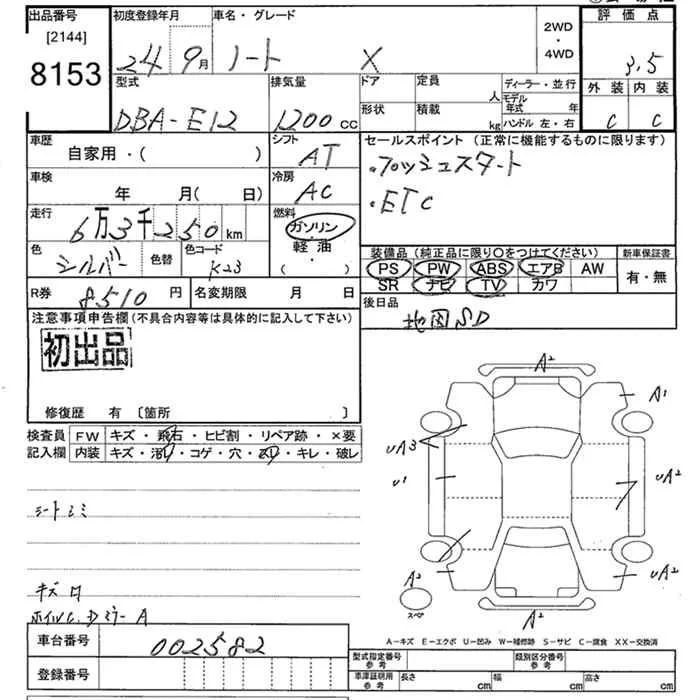 出品番号
[2144]
8153
初度登録年月
24 9月
車名・グレード
ノート X
2WD
・
4WD
評価点
3.5
外装 内装
C C
型式
DBA-E12
排気量
1200 CC
ドア
形状
定員
人
積載
kg
ディーラー・並行
モデル年式 年
ハンドル 左・右
車歴
自家用・( )
シフト
AT
セールスポイント(正常に機能するものに限ります)
・プッシュスタート
・ETC
車検
年 月( 日)
冷房
AC
走行
6万3千250km
燃料
ガソリン
軽油
・( )
色
シルバー
色替
色コード
K23
装備品(純正品に限り○をつけてください)
PS PW ABS エアB AW
SR ナビ TV カワ
新車保証書
有・無
R券 8510円
名変期限 月 日
後日品
地図SD
注意事項申告欄(不具合内容等は具体的に記入して下さい)
初出品
修復歴 有 〔箇所 〕
検査員
記入欄
FW キズ・飛石・ヒビ割・リペア跡・×要
内装 キズ・汚レ・コゲ・穴・スレ・キレ・破レ
シートシミ
A2
A1
UA3
U1
UA2
UA2
A2
スペア
A2
A−キズ E−エクボ U−凹み W−補修跡 S−サビ C−腐食 XX−交換済
車台番号
002582
登録番号
型式指定番号
参考
類別区分番号
参考
車庫証明用
参考
長さ cm
幅 cm
高さ cm